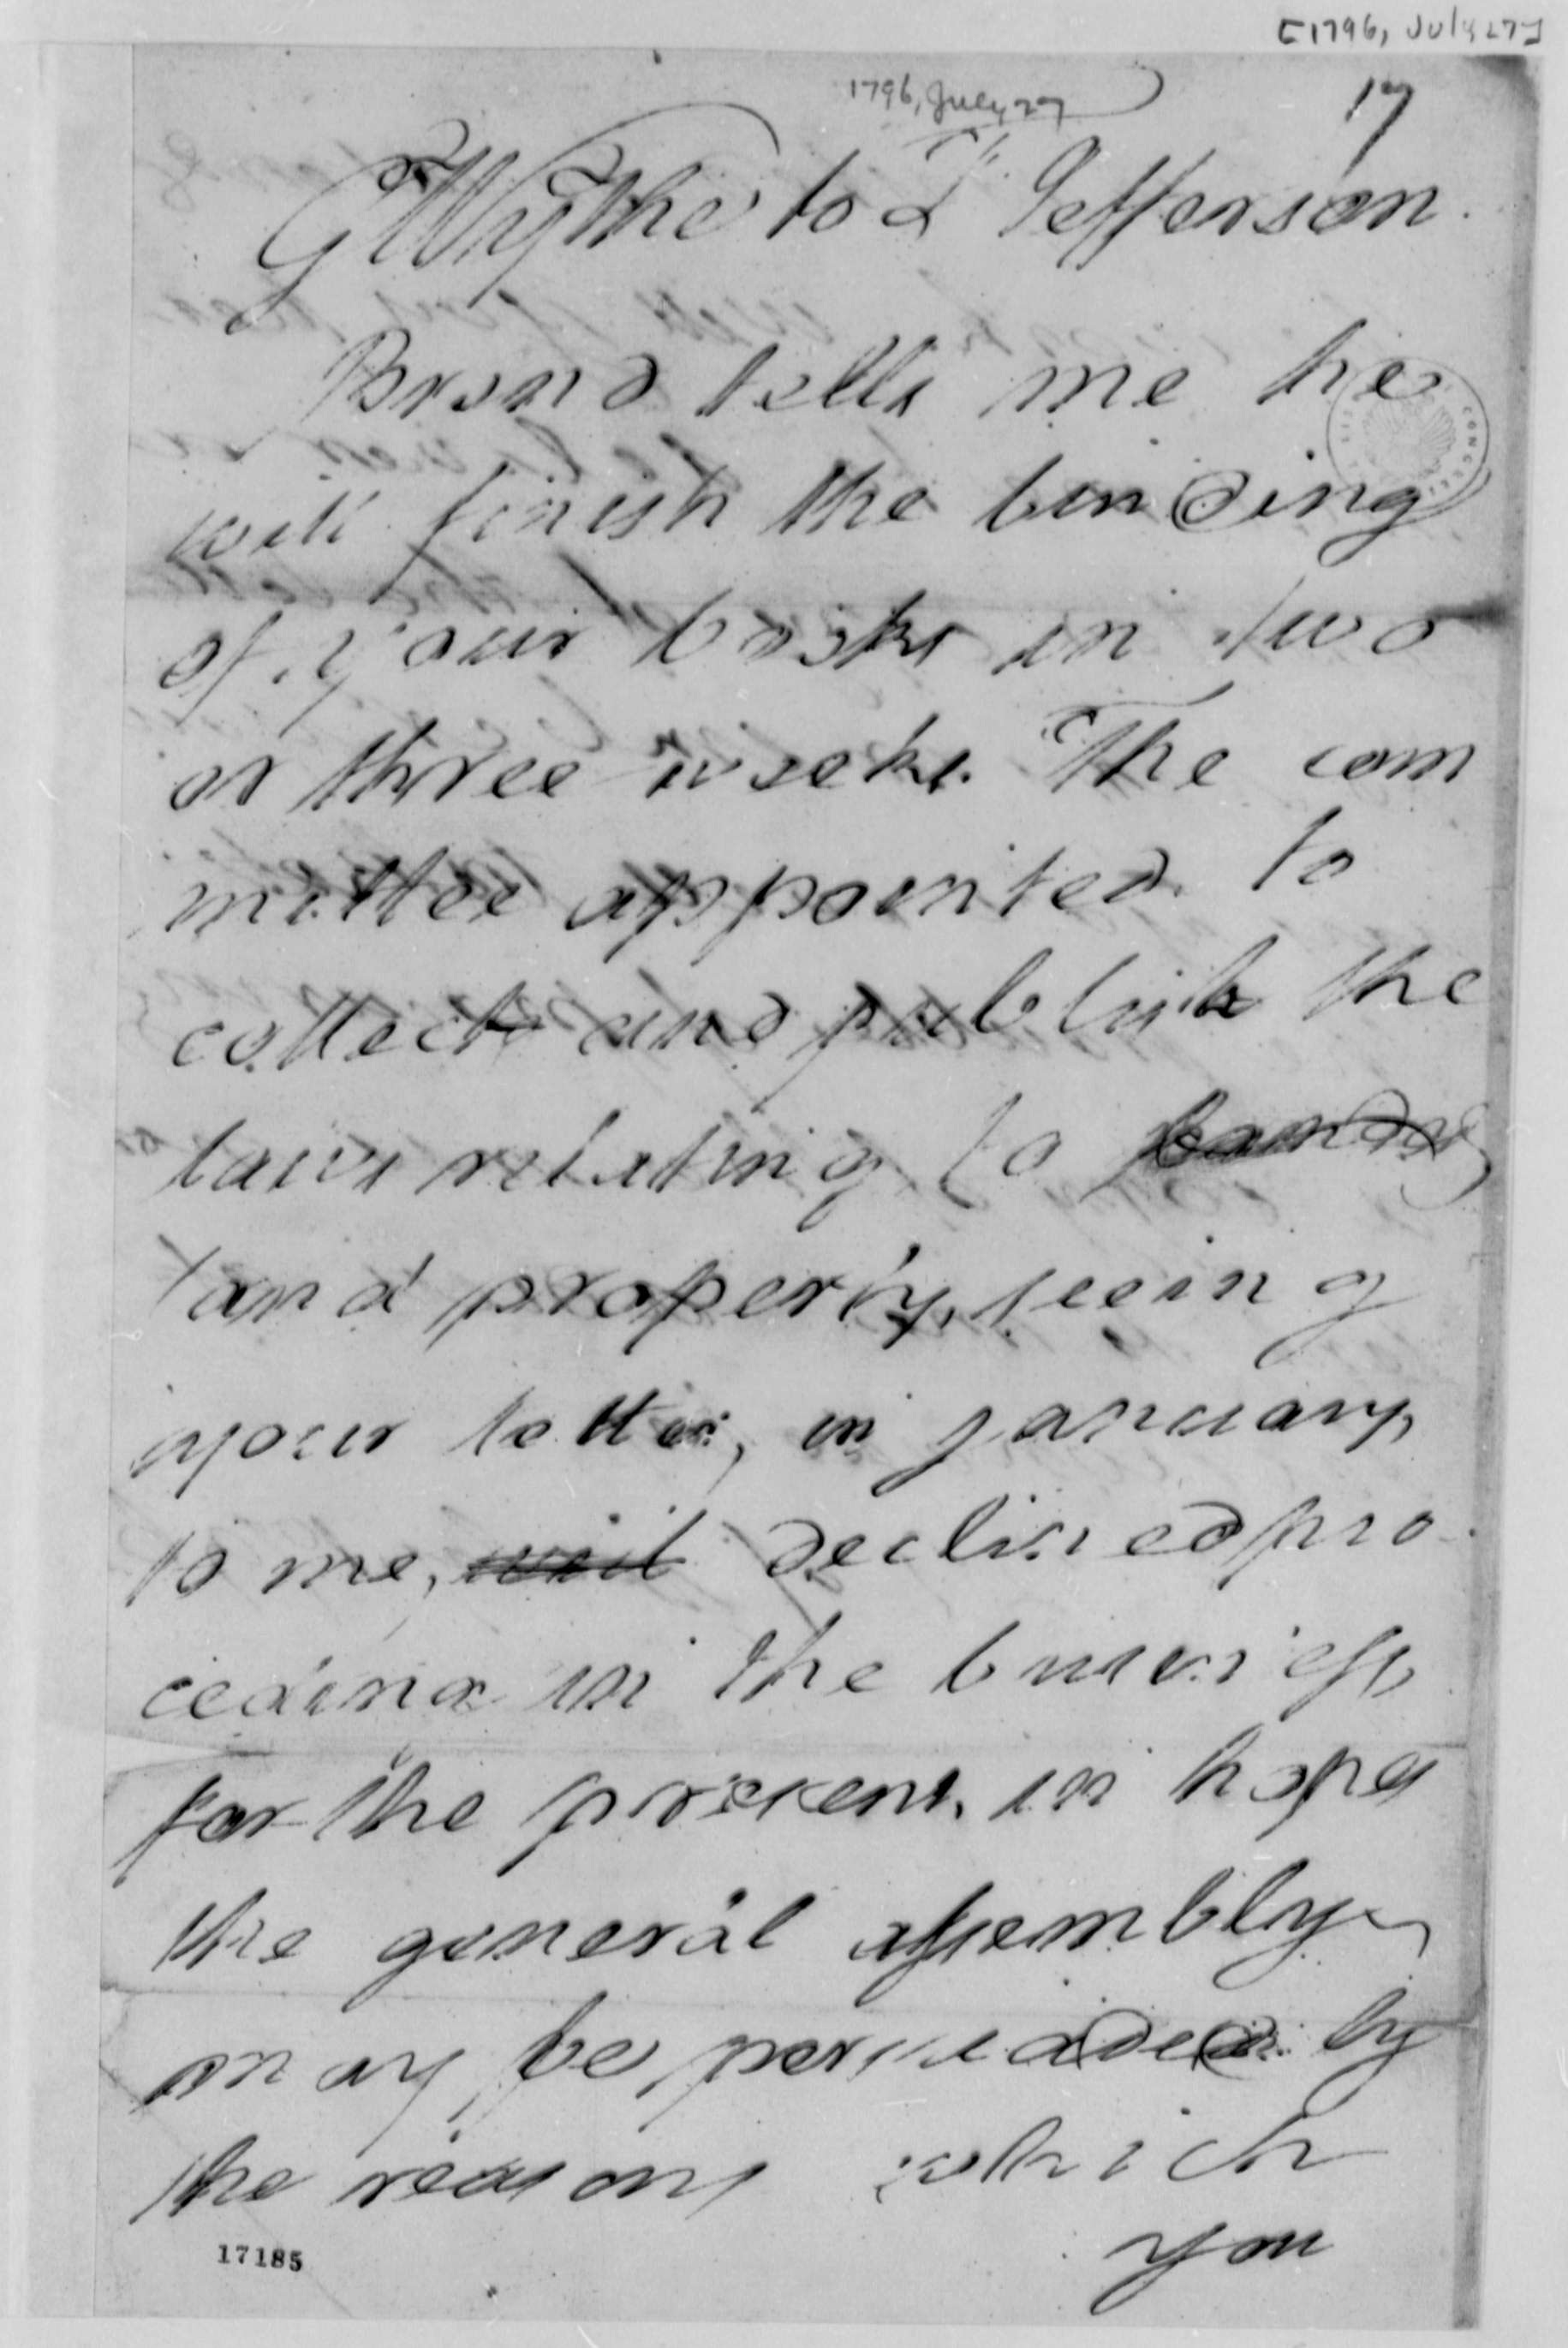 [1796, July 27]
1796, July 27
17
G Wythe to T Jefferson.
Brand tells me he
will finish the binding
of your books in two
or three weeks. The com
mittee appointed to
collect and publish the
laws relating to
land property, seeing
your letter, in january,
to me, declined pro
ceding in the business
for the present, in hopes
the general assembly
may be persuaded by
the reasons which
you
17185